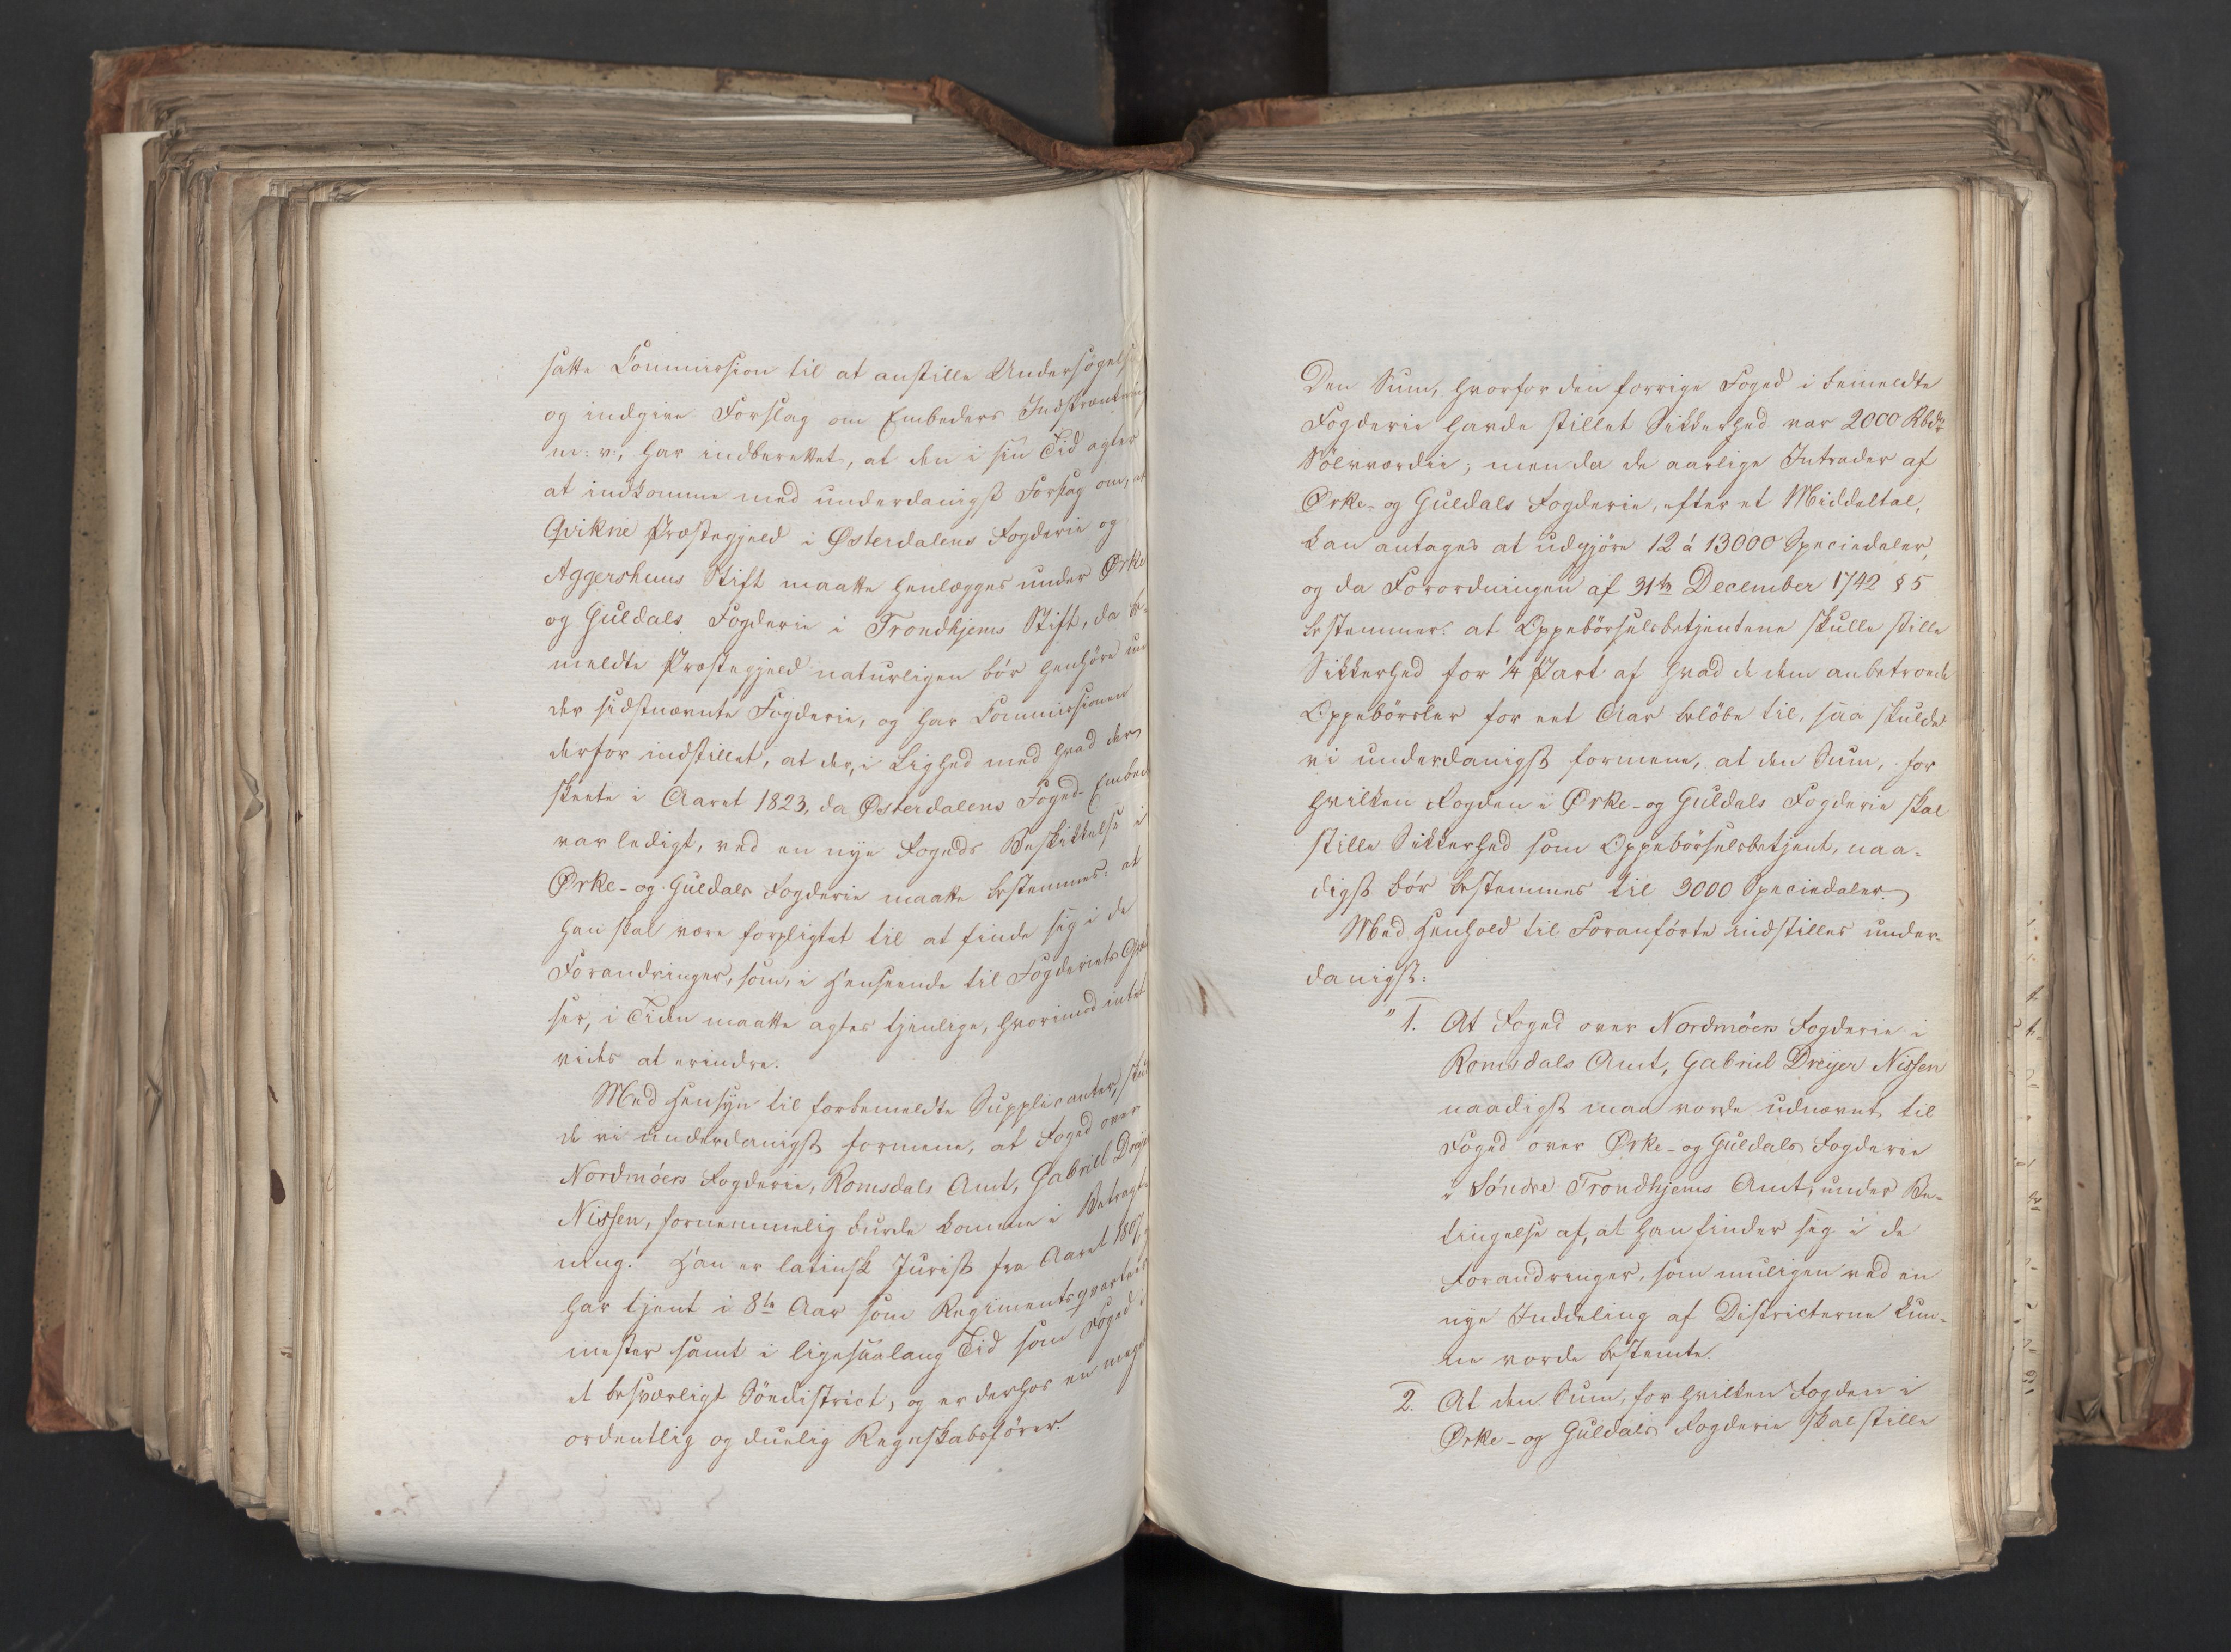 satte Commission til at anstille Undersøgelse
og indgive Forslag om Embeders Indskrænkning
m: v:, har indberettet, at den i sin Tid agter
at indkomme med underdanigst Forslag om, at
Qvikne Præstegjeld i Østerdalens Fogderie og
Aggershuus Stift maatte henlægges under Ørke
og Guldals Fogderie i Trondhjems Stift, da be-
meldte Præstegjeld naturligen bör henhöre un
der sidstnævnte Fogderie, og har Commissionen
derfor indstillet, at der, i Lighed med hvad der
skeete i Aaret 1823, da Østerdalens Foged-Embed
var ledigt, ved en nye Fogeds Beskikkelse i
Ørke- og Guldals Fogderie maatte bestemmes: at
han skal være forpligtet til at finde sig i de
Forandringer, som, i Henseende til Fogderiets Græn
ser, i Tiden maatte agtes tjenlige, hvorimod intet
vides at erindre.
Med Hensyn til forbemeldte Supplicanter, skul
de vi underdanigst formene, at Foged over
Nordmöers Fogderie, Romsdals Amt, Gabriel Dreyer
Nissen, fornemmelig burde komme i Betragt
ning. Han er latinsk Jurist fra Aaret 1807,
har tjent i 8te Aar som Regimentsqvarteer
mester samt i ligesaalang Tid som Foged i
et besværligt Söedistrict, og er derhos en meget
ordentlig og duelig Regnskabsförer.
Den Sum, hvorfor den forrige Foged i bemeldte
Fogderie havde stillet Sikkerhed var 2000 Rbdr
Sölvværdie; men da de aarlige Intrader af
Ørke- og Guldals Fogderie, efter et Middeltal,
kan antages at udgjöre 12 á 13000 Speciedaler,
og da Forordningen af 31te December 1742 § 5
bestemmer: at Oppebörselsbetjentene skulle stille
Sikkerhed for 1/4 Part af hvad de dem anbetroede
Oppebörsler for eet Aar belöbe til, saa skulde
vi underdanigst formene, at den Sum, for
hvilken Fogden i Ørke- og Guldals Fogderie skal
stille Sikkerhed som Oppebörselsbetjent, naa-
digst bör bestemmes til 3000 Speciedaler.
Med Henhold til Foranförte indstilles under-
danigst:
" 1. At Foged over Nordmöers Fogderie i
Romsdals Amt, Gabriel Dreyer Nissen
naadigst maa vorde udnævnt til
Foged over Ørke- og Guldals Fogderie
i Söndre Trondhjems Amt, under Be-
tingelse af, at han finder sig i de
Forandringer, som muligen ved en
nye Inddeling af Districterne kun-
ne vorde bestemte.
2. At den Sum, for hvilken Fogden i
Ørke- og Guldals Fogderie skal stille